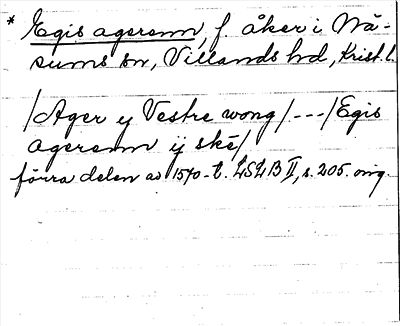 * Egis agerenn, f. åker i Nå-
sums sn, Villands hd, Krist. l.
/Ager y Vestre wong/---/Egis
agerenn ij ske/
förra delen av 1570-t. LSLB II, s. 205. orig.